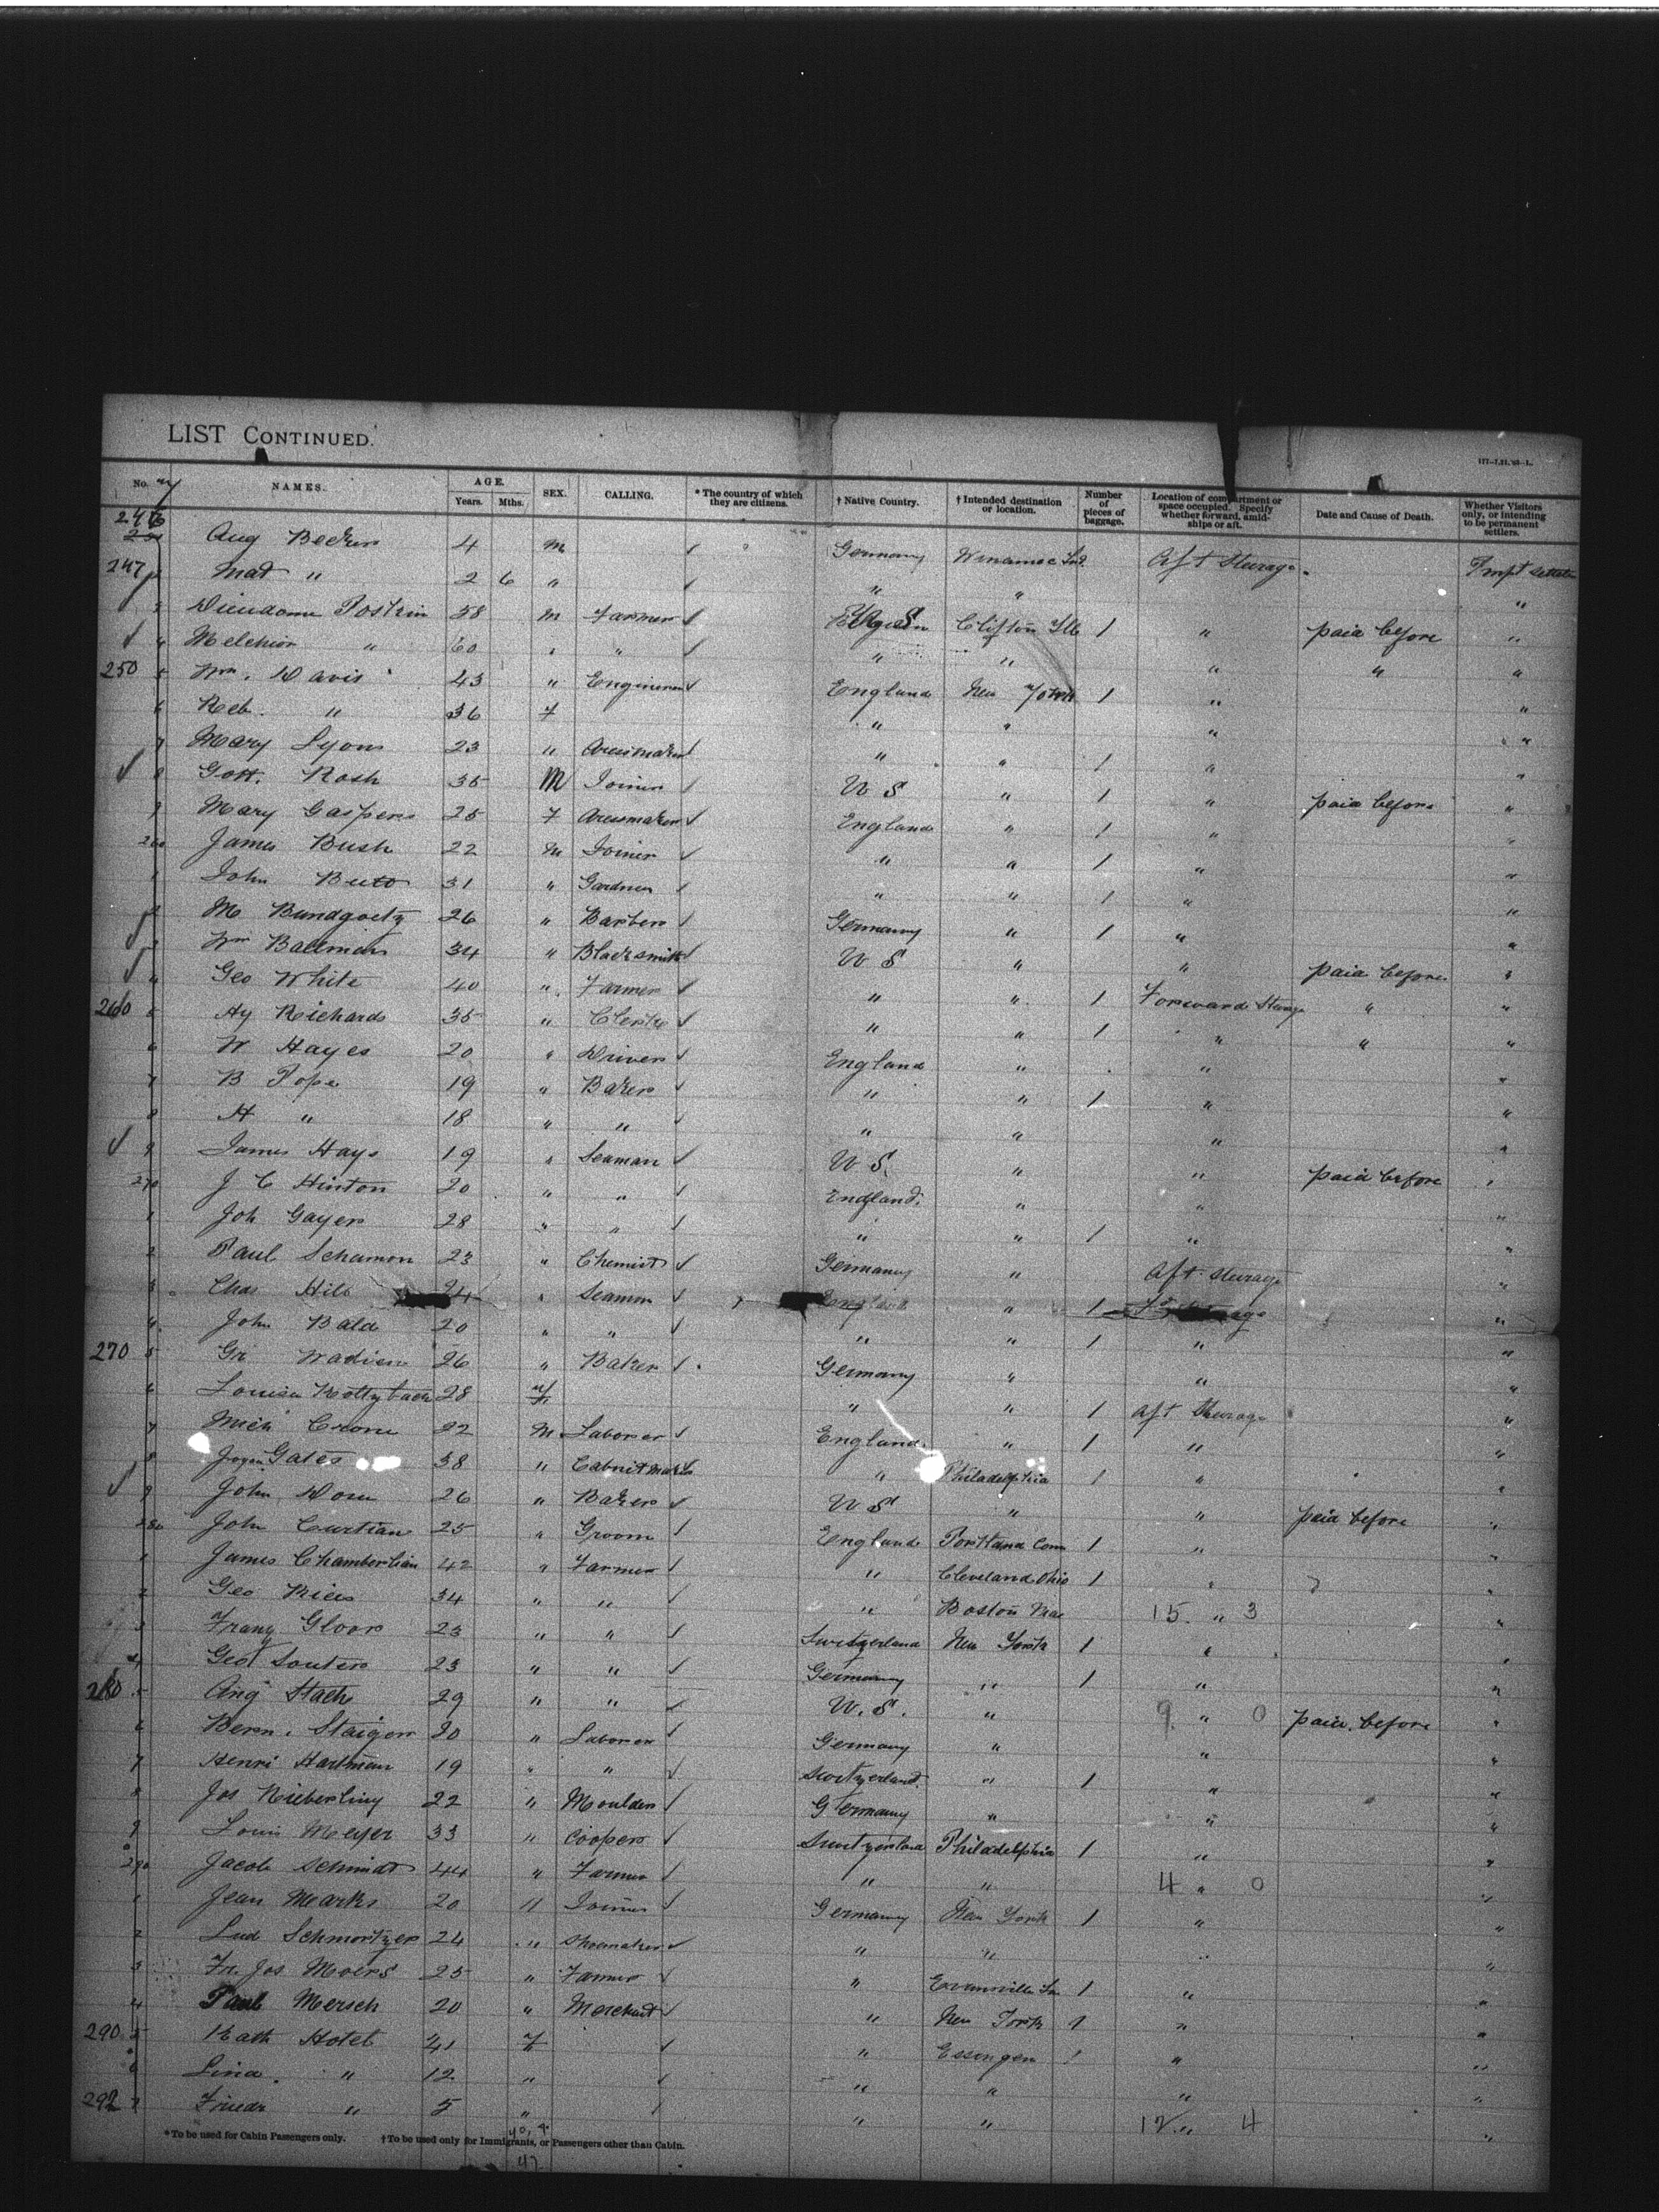 LIST CONTINUED.
No. NAMES. AGE. Years. Mths. SEX. CALLING. * The country of which they are citizens. † Native Country. † Intended destination or location. Number of pieces of baggage. Location of compartment or space occupied. Specify whether forward, amidships or aft. Date and Cause of Death. Whether Visitors only, or intending to be permanent settlers.
246 Aug Becker 4 M ✓ Germany Winamac Ind. Aft Sterage.
247 Mad " 2 6 " ✓ " " "
3 58 M Farmer ✓ Clifton Ills 1 " paid before "
✓ 4 Melchior " 60 " " ✓ " " " " "
250 5 Wm. Davis 43 " Engineer ✓ England New York 1 " "
6 Reb. " 36 F " " " "
7 Mary Lyons 23 " Dressmaker ✓ " " 1 " "
✓ 8 Gott. Rosh 35 M Joiner ✓ U S " 1 " paid before "
9 Mary Gaspers 25 F Dressmaker ✓ England " 1 " "
260 James Bush 22 M Joiner ✓ " " 1 " "
1 John 31 " Gardner ✓ " " 1 " "
2 M Bundgoetz 26 " Barber ✓ Germany " 1 " "
✓ 3 Wm Balleman 34 " Blacksmith ✓ U S " " paid before "
✓ 4 Geo White 40 " Farmer ✓ " " 1 Forward Sterage " "
260 5 Hy Richards 35 " Clerk ✓ " " 1 " " "
6 W Hayes 20 " Driver ✓ England " " "
7 B Pope 19 " Baker ✓ " " 1 " "
8 H " 18 " " ✓ " " " "
✓ 9 James Hays 19 " Seaman ✓ U S. " " paid before "
270 J C Hinton 20 " " ✓ England. " " "
1 Joh Gayer 28 " " ✓ " " 1 " "
2 Paul Schamon 23 " Chemist ✓ Germany " Aft Sterage "
3 Chas Hill 24 " Seamen ✓ England " 1 "
4 John Bald 20 " " ✓ " " 1 " "
270 5 Gr 26 " Baker ✓ Germany " " "
6 Louisa 28 F " " 1 Aft Sterage "
7 Mich Crone 22 M Laborer ✓ England. " 1 " "
8 Gates 38 " Cabnitmaker " Philadelphia 1 " "
✓ 9 John Dorn 26 " Baker ✓ U S " " paid before "
280 John Curtian 25 " Groom ✓ England Portland Conn 1 " "
1 James Chamberlian 42 " Farmer ✓ " Cleveland Ohio 1 " "
2 Geo Rice 34 " " ✓ " Boston Mas 15 " 3 "
3 Franz Gloor 23 " " ✓ Switzerland New York 1 " "
4 Geo Souter 23 " " ✓ Germany " 1 " "
280 5 Aug Stach 29 " " ✓ U. S. " 9 " 0 paid before "
6 Bern. Staiger 20 " Laborer ✓ Germany " " "
7 Henri Hartman 19 " " ✓ Switzerland. " 1 " "
8 Jos Rieberling 22 " Moulder ✓ Germany " " "
9 Louis Meyer 33 " Cooper ✓ Switzerland Philadelphia 1 " "
290 Jacob Schmidt 44 " Farmer ✓ " " 4 " 0 "
1 Jean Marks 20 " Joiner ✓ Germany New York 1 " "
2 Lud Schmortzer 24 " Shoemaker ✓ " " " "
3 Fr. Jos Moers 25 " Farmer ✓ " Evansville In 1 " "
4 Paul Mersch 20 " Merchant ✓ " New York 1 " "
290 5 Kath Hotel 41 F ✓ " Essingen 1 " "
6 Lina " 12 " ✓ " " " "
292 7 Friedr " 5 " " " 12 " 4 "
*To be used for Cabin Passengers only. †To be used only for Immigrants, or Passengers other than Cabin.
47